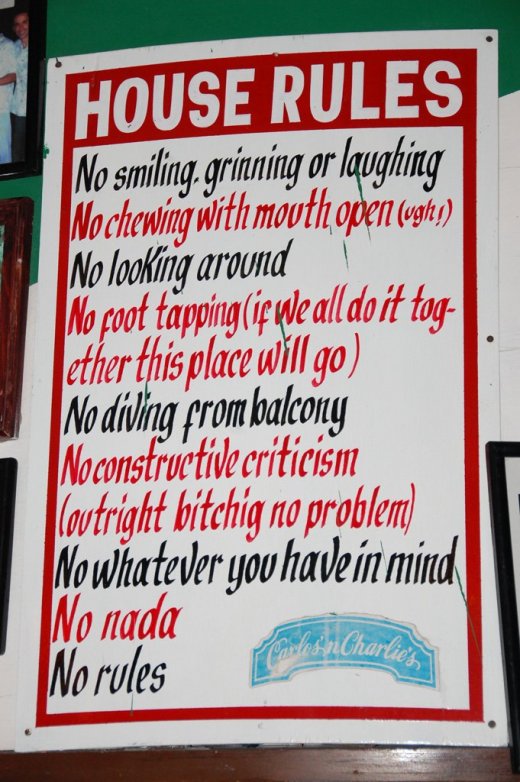 HOUSE RULES
No smiling, grinning or laughing
No chewing with mouth open (ugh!)
No looking around
No foot tapping (if we all do it tog-
ether this place will go)
No diving from balcony
No constructive criticism
(outright bitchig no problem)
No whatever you have in mind
No nada
No rules
Carlos'n Charlie's